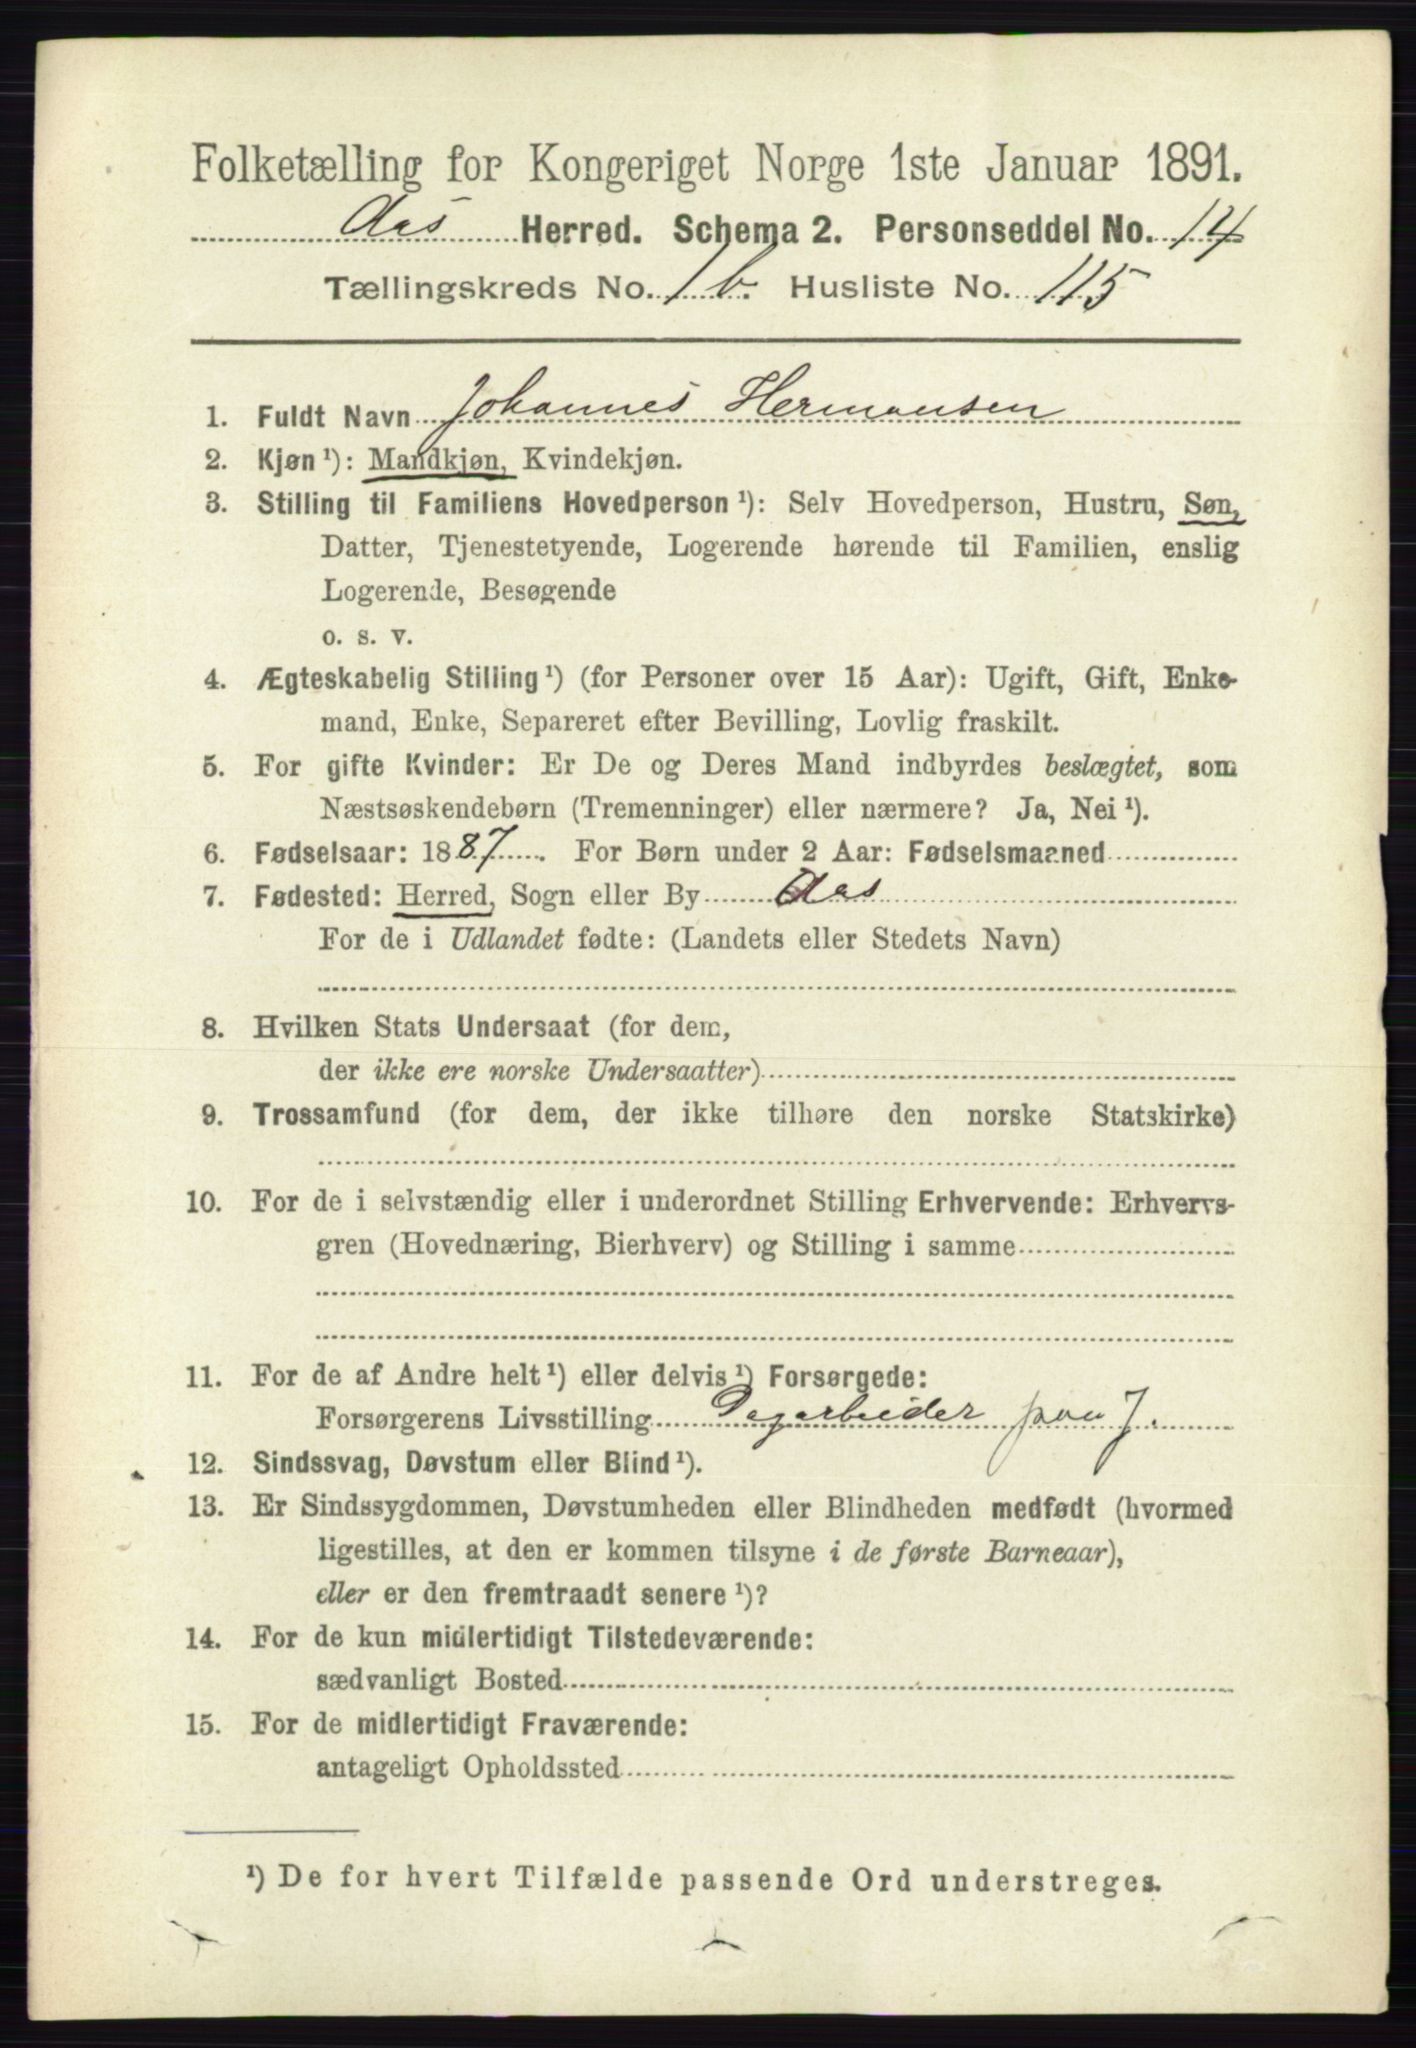 Folketælling for Kongeriget Norge 1ste Januar 1891.
Aas Herred. Schema 2. Personseddel No. 14
Tællingskreds No. 1 b. Husliste No. 115
1. Fuldt Navn Johannes Hermansen
2. Kjøn ¹): Mandkjøn, Kvindekjøn.
3. Stilling til Familiens Hovedperson ¹): Selv Hovedperson, Hustru, Søn,
Datter, Tjenestetyende, Logerende hørende til Familien, enslig
Logerende, Besøgende
o. s. v.
4. Ægteskabelig Stilling ¹) (for Personer over 15 Aar): Ugift, Gift, Enke-
mand, Enke, Separeret efter Bevilling, Lovlig fraskilt.
5. For gifte Kvinder: Er De og Deres Mand indbyrdes beslægtet, som
Næstsøskendebørn (Tremenninger) eller nærmere? Ja, Nei ¹).
6. Fødselsaar: 1887. For Børn under 2 Aar: Fødselsmaaned
7. Fødested: Herred, Sogn eller By Aas
For de i Udlandet fødte: (Landets eller Stedets Navn)
8. Hvilken Stats Undersaat (for dem,
der ikke ere norske Undersaatter)
9. Trossamfund (for dem, der ikke tilhøre den norske Statskirke)
10. For de i selvstændig eller i underordnet Stilling Erhvervende: Erhvervs-
gren (Hovednæring, Bierhverv) og Stilling i samme
11. For de af Andre helt ¹) eller delvis ¹) Forsørgede:
Forsørgerens Livsstilling Dagarbeider paa J.
12. Sindssvag, Døvstum eller Blind ¹).
13. Er Sindssygdommen, Døvstumheden eller Blindheden medfødt (hvormed
ligestilles, at den er kommen tilsyne i de første Barneaar),
eller er den fremtraadt senere ¹)?
14. For de kun midlertidigt Tilstedeværende:
sædvanligt Bosted
15. For de midlertidigt Fraværende:
antageligt Opholdssted
¹) De for hvert Tilfælde passende Ord understreges.